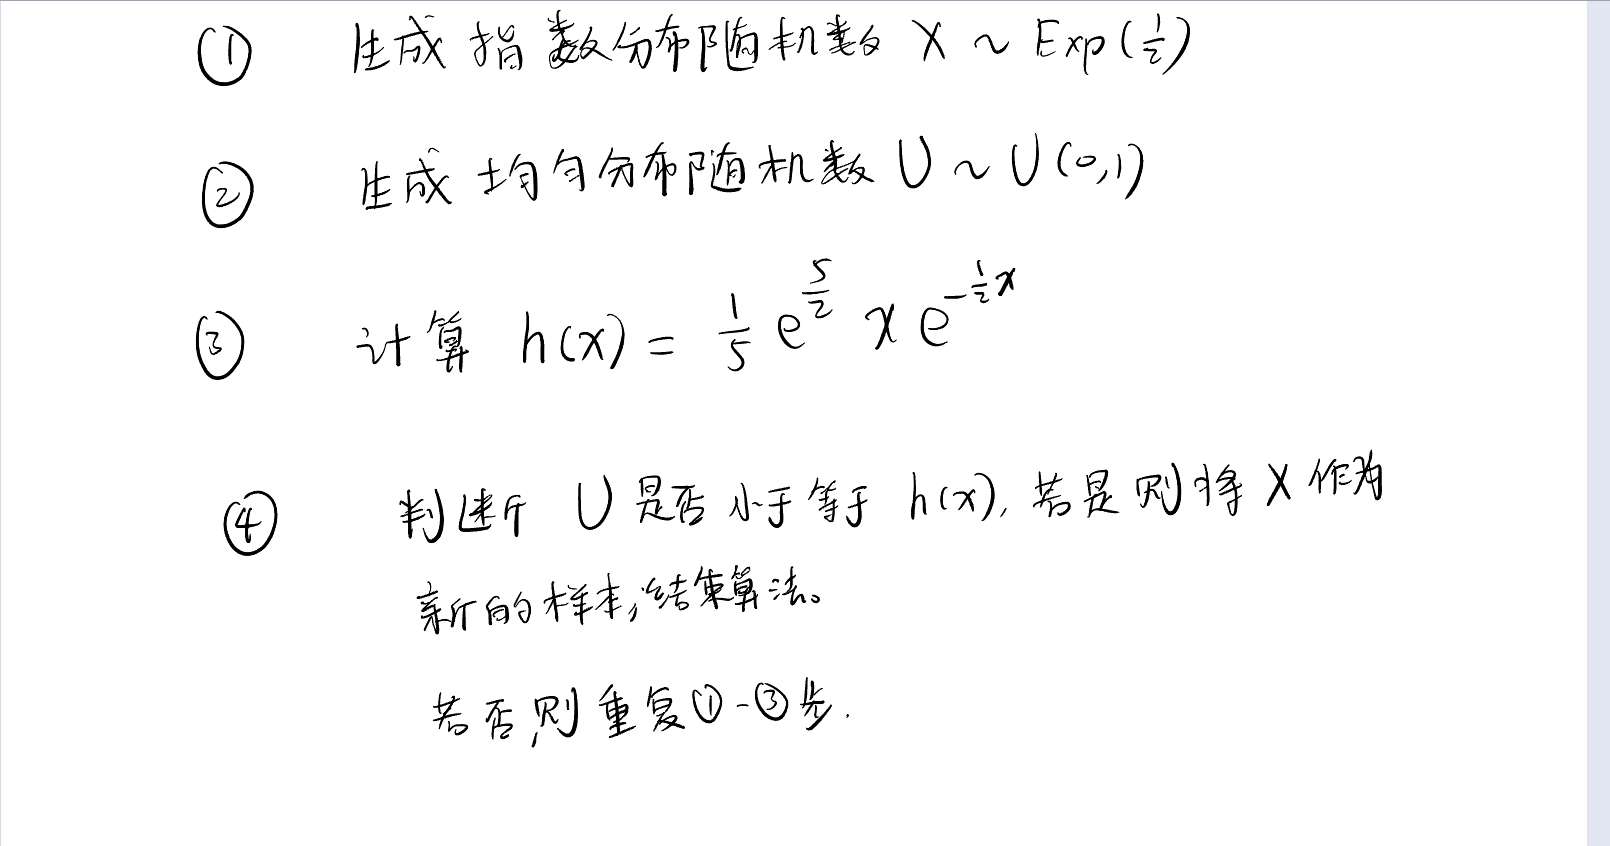 ① 生成指数分布随机数 X ~ Exp(1/2)
② 生成均匀分布随机数 U ~ U(0,1)
③ 计算 h(x) = 1/5 e^{5/2} x e^{-1/2 x}
④ 判断 U 是否小于等于 h(x), 若是则将 X 作为
新的样本,结束算法。
若否,则重复①-③步.